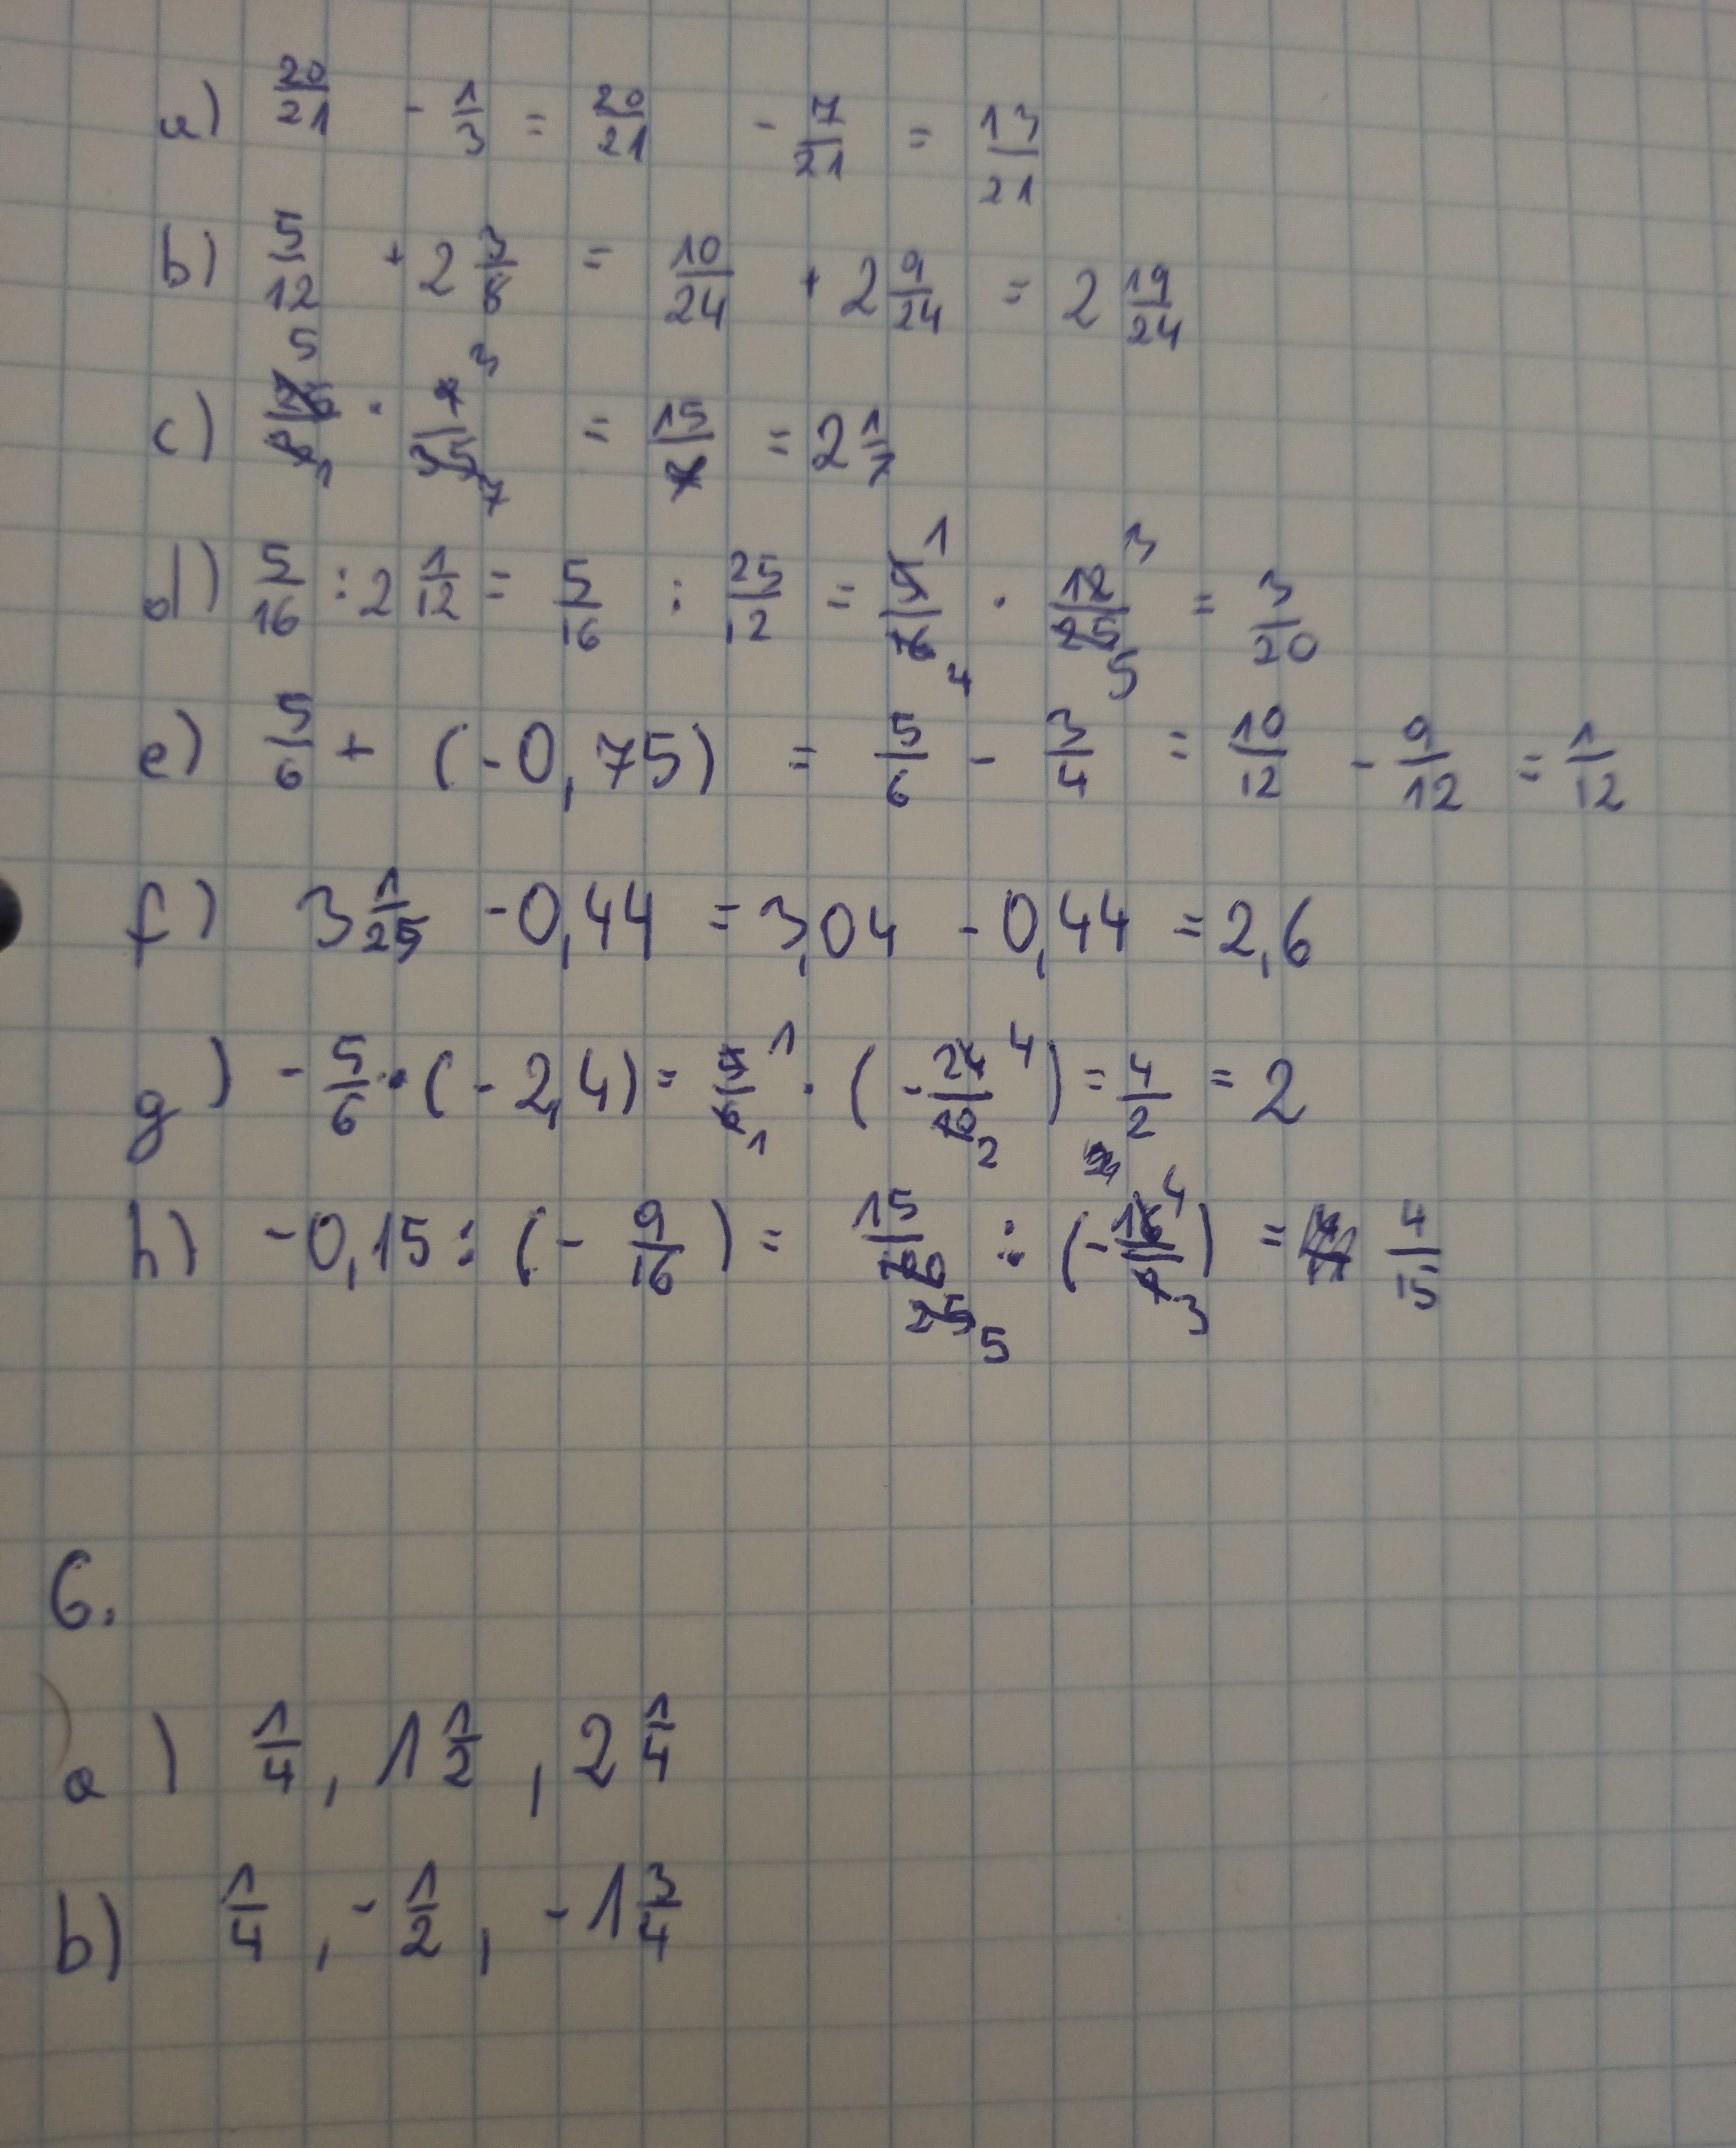 a) 20/21 - 1/3 = 20/21 - 7/21 = 13/21
b) 5/12 + 2 3/8 = 10/24 + 2 9/24 = 2 19/24
c) 5 1 · 9/35 3 7 = 15/7 = 2 1/7
d) 5/16 : 2 1/12 = 5/16 : 25/12 = 5/16 1 4 · 12/25 3 5 = 3/20
e) 5/6 + (-0,75) = 5/6 - 3/4 = 10/12 - 9/12 = 1/12
f) 3 1/25 - 0,44 = 3,04 - 0,44 = 2,6
g) - 5/6 · (-2,4) = 5/6 1 1 · (- 24/10 4 2) = 4/2 = 2
h) -0,15 : (- 9/16) = 15/100 25 5 : (- 16/9 4 3) = 4/15
6.
a) 1/4, 1 1/2, 2 1/4
b) 1/4, - 1/2, - 1 3/4